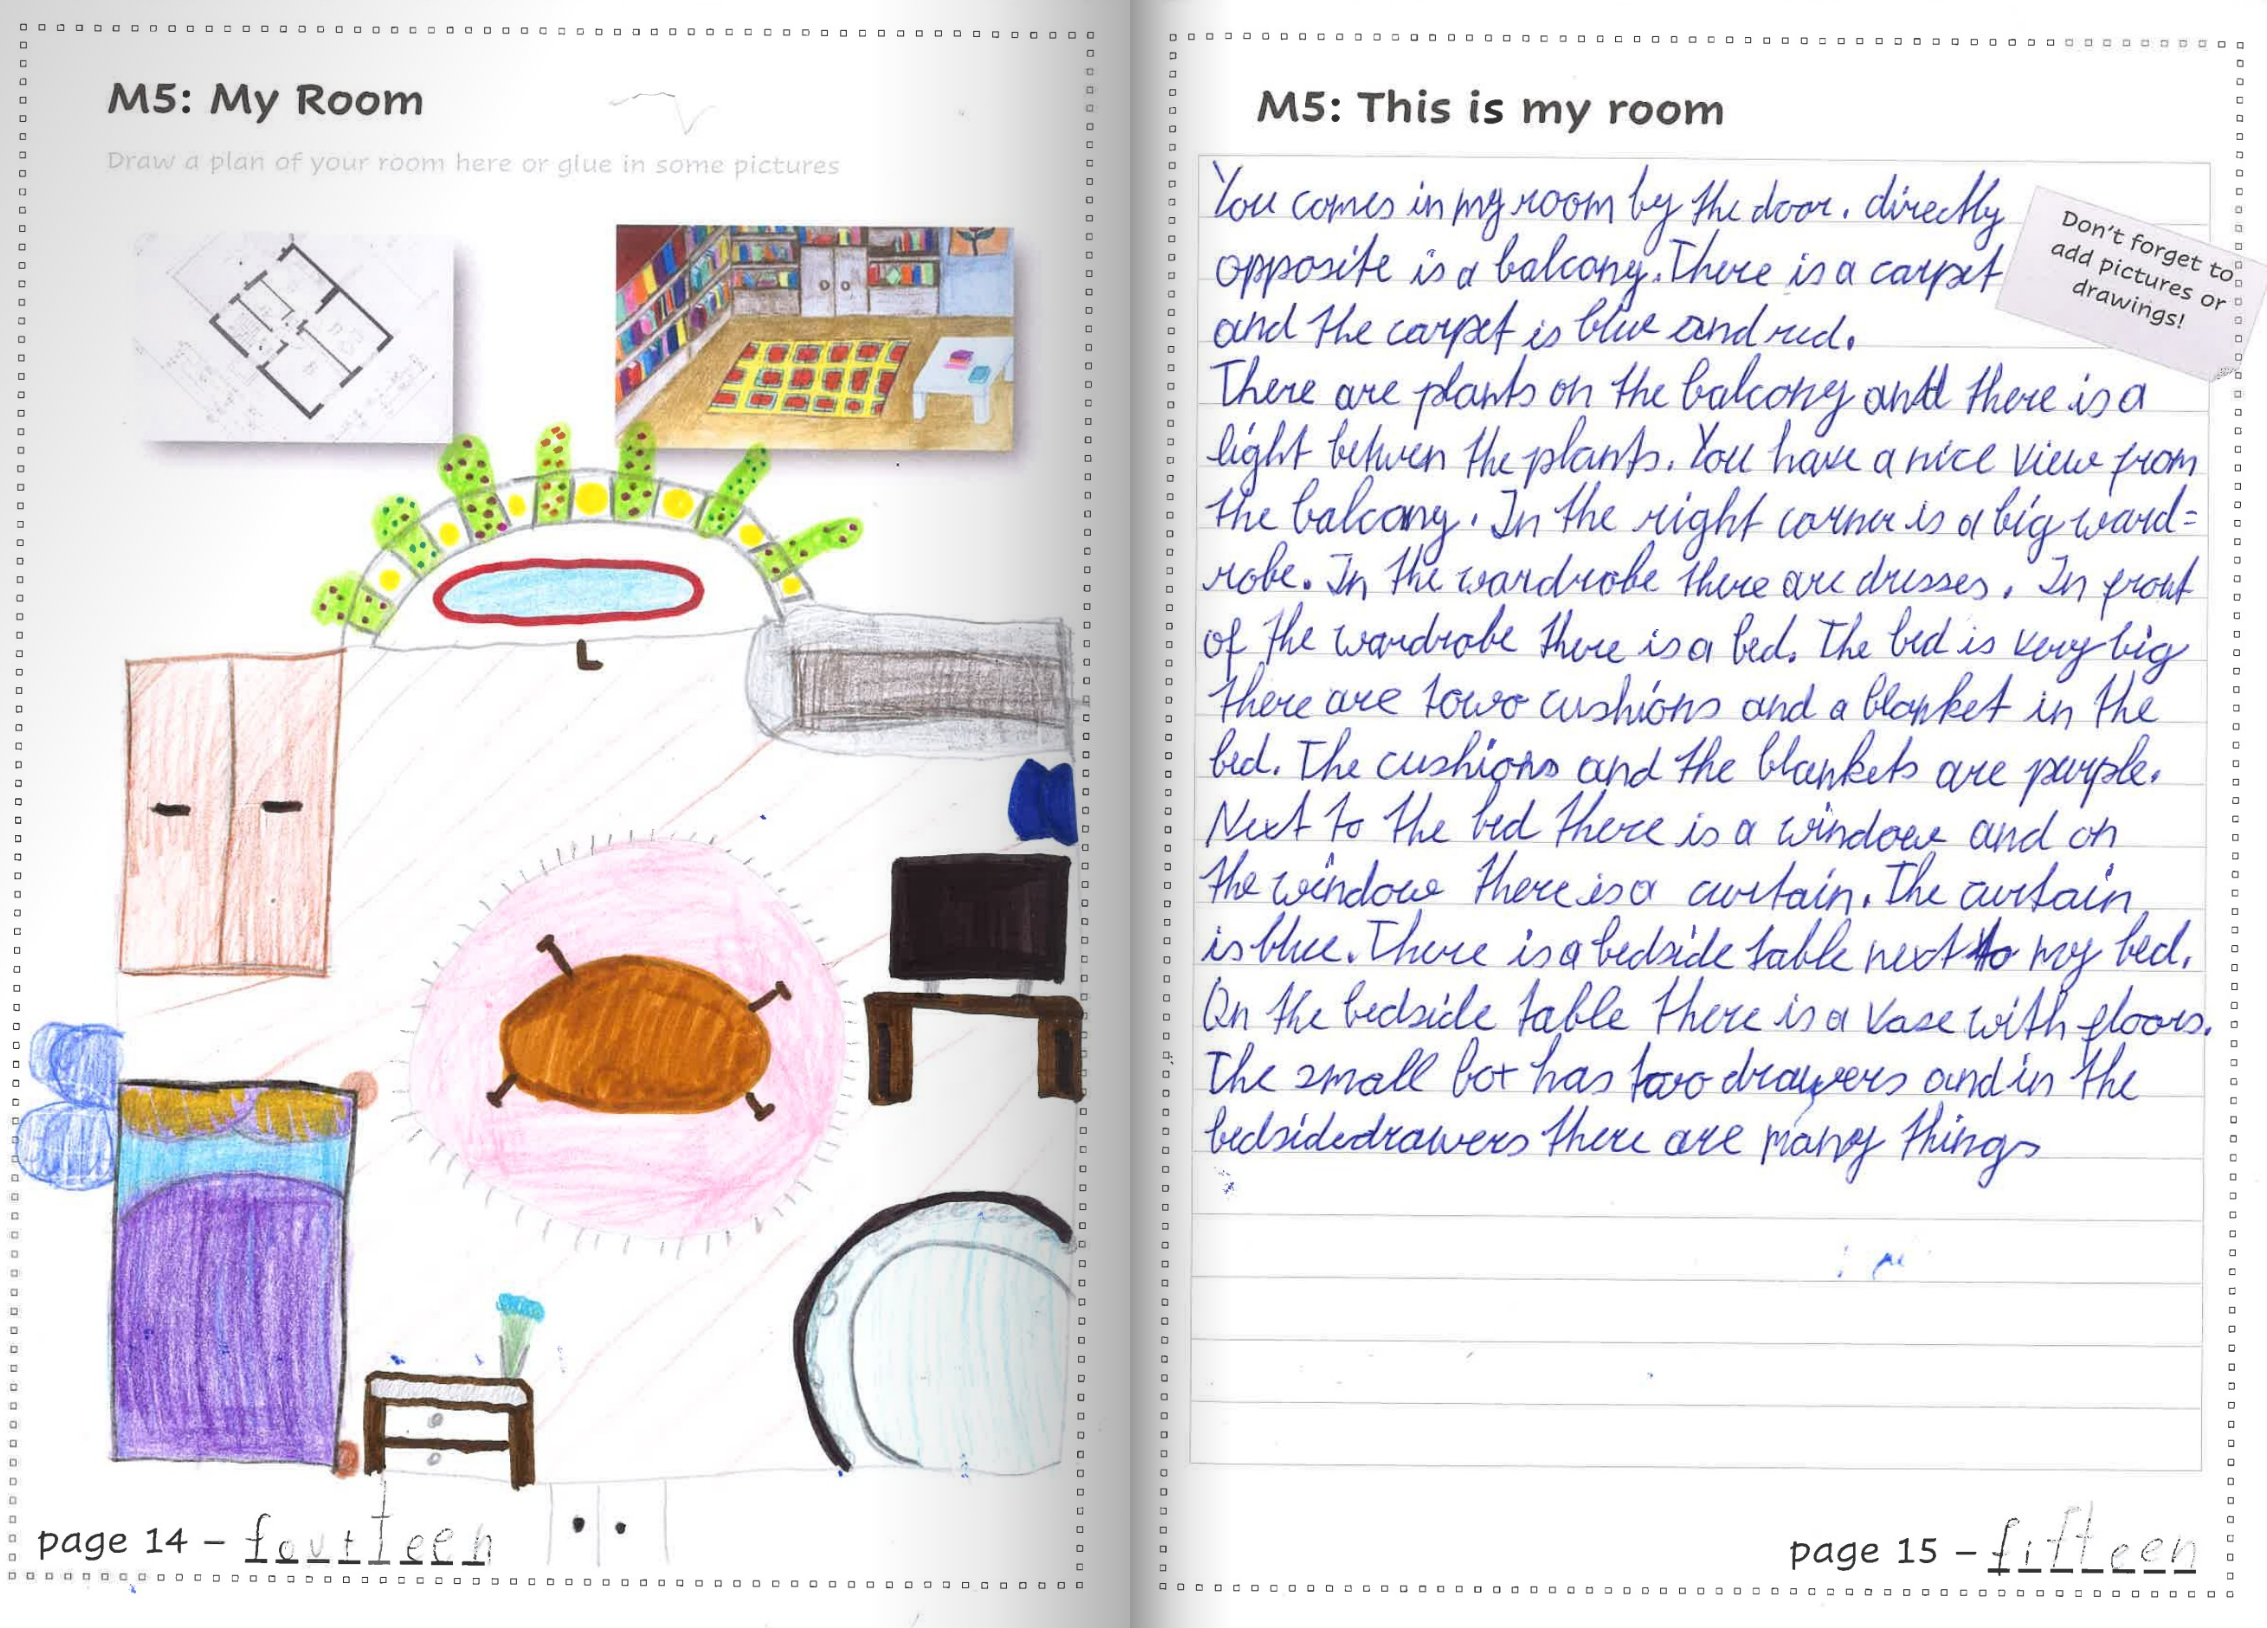 M5: My Room
Draw a plan of your room here or glue in some pictures
page 14 – fourteen
M5: This is my room
Don't forget to
add pictures or
drawings!
You comes in my room by the door. directly
opposite is a balcony. There is a carpet
and the carpet is blue and red.
There are plants on the balcony and there is a
light betwen the plants. You have a nice view from
the balcony. In the right corner is a big ward=
robe. In the wardrobe there are dresses. In front
of the wardrobe there is a bed. The bed is very big
there are towo cushions and a blanket in the
bed. The cushions and the blankets are purple.
Next to the bed there is a window and on
the window there is a curtain. The curtain
is blue. There is a bedside table next to my bed.
On the bedside table there is a vase with floors.
The small box has two drawers and in the
bedsidedrawers there are many things
page 15 – fifteen